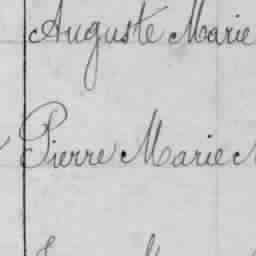 Auguste Marie
Pierre Marie